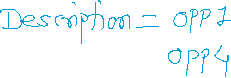 Description = OPP1
OPP4